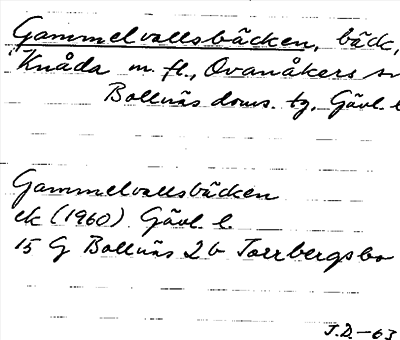 Gammelvallsbäcken, bäck,
Knåda m. fl., Ovanåkers sn
Bollnäs doms. tg, Gävl. l
Gammelvallsbäcken
ek (1960) Gävl. l.
15 G Bollnäs 2 b Torrbergsbo
J.D.-63